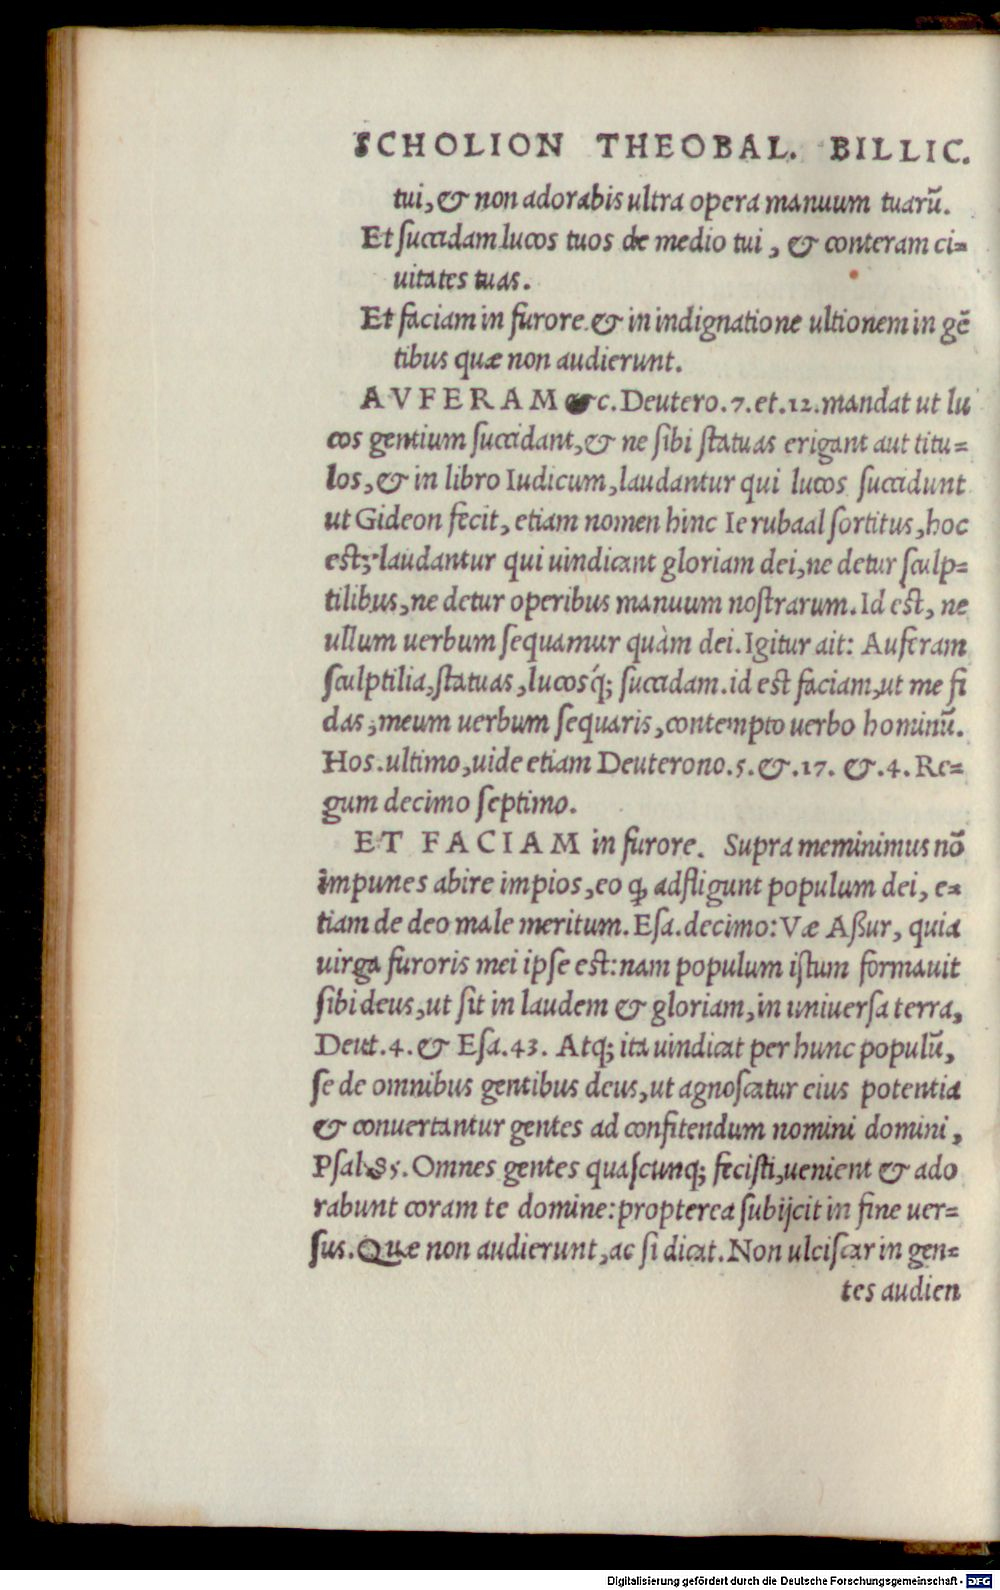 SCHOLION THEOBAL. BILLIC.
tui, & non adorabis ultra opera manuum tuarū.
Et succidam lucos tuos de medio tui, & conteram ci=
uitates tuas.
Et faciam in furore & in indignatione ultionem in gē
tibus quæ non audierunt.
AVFERAM &c. Deutero. 7. et. 12. mandat ut lu
cos gentium succidant, & ne sibi statuas erigant aut titu=
los, & in libro Iudicum, laudantur qui lucos succidunt
ut Gideon fecit, etiam nomen hinc Ierubaal sortitus, hoc
est, laudantur qui uindicant gloriam dei, ne detur sculp=
tilibus, ne detur operibus manuum nostrarum. Id est, ne
ullum uerbum sequamur quàm dei. Igitur ait: Auferam
sculptilia, statuas, lucosq́; succidam. id est faciam, ut me fi
das, meum uerbum sequaris, contempto uerbo hominū.
Hos. ultimo, uide etiam Deuterono. 5. &. 17. &. 4. Re=
gum decimo septimo.
ET FACIAM in furore. Supra meminimus nō
impunes abire impios, eo ꝙ adfligunt populum dei, e=
tiam de deo male meritum. Esa. decimo: Væ Aßur, quia
uirga furoris mei ipse est: nam populum istum formauit
sibi deus, ut sit in laudem & gloriam, in uniuersa terra,
Deut. 4. & Esa. 43. Atq; ita uindicat per hunc populū,
se de omnibus gentibus deus, ut agnoscatur eius potentia
& conuertantur gentes ad confitendum nomini domini,
Psal. 85. Omnes gentes quascunq; fecisti, uenient & ado
rabunt coram te domine: propterea subijcit in fine uer=
sus. Quæ non audierunt, ac si dicat. Non ulciscar in gen=
tes audien
Digitalisierung gefördert durch die Deutsche Forschungsgemeinschaft - DFG